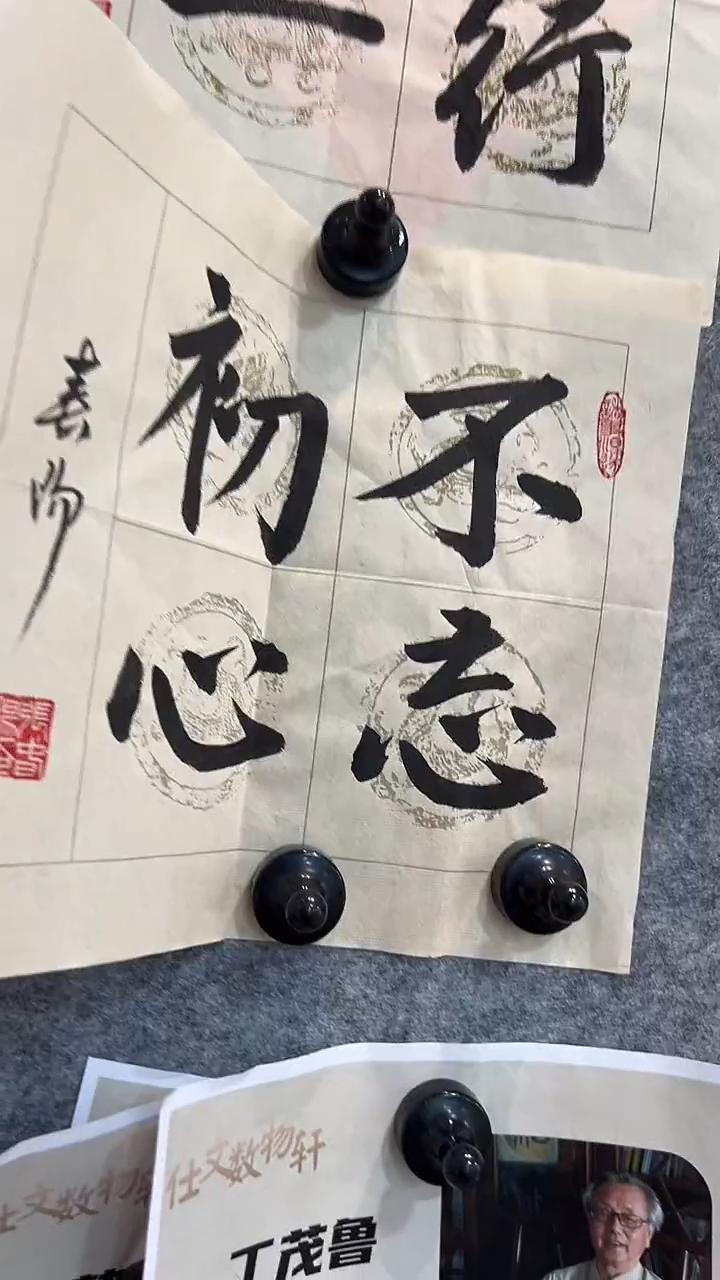 行
一
不忘
初心
仕文数物
仕文数物轩
丁茂鲁